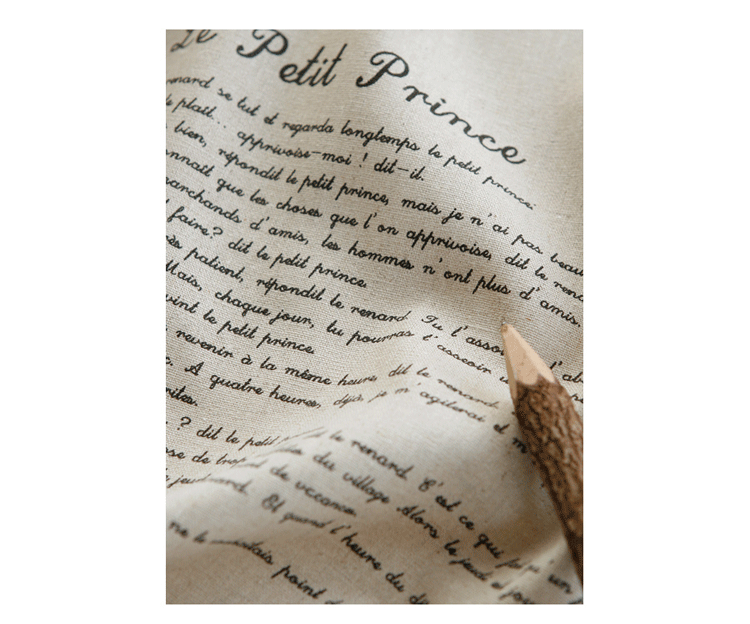 Le Petit Prince
renard se tut et regarda longtemps le petit prince:
plaît... apprivoise-moi ! dit-il.
bien, répondit le petit prince, mais je n'ai pas beau
nnaît que les choses que l'on apprivoise, dit le rena
marchands d'amis, les hommes n'ont plus d'amis.
faire? dit le petit prince.
patient, répondit le renard. Tu l'asso
Mais, chaque jour, tu pourras t'asseoir
vint le petit prince.
revenir à la même heure, dit le renard.
A quatre heures, déjà, je m'agiterai et m
rites.
? dit le petit
le renard. C'est ce qui
de
du village. Alors le jeudi
de vacances.
Et quand l'heure du
ne
point